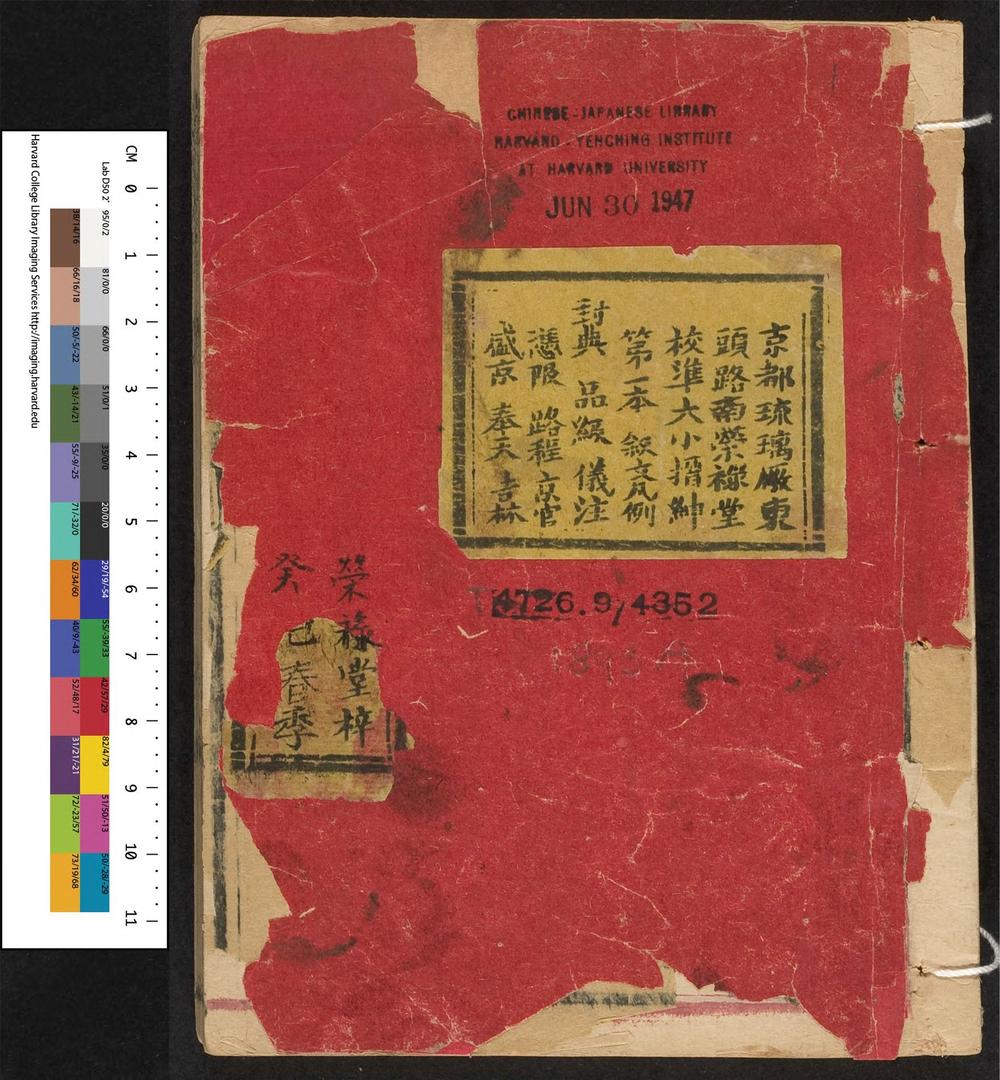 CHINESE-JAPANESE LIBRARY
HARVARD-YENCHING INSTITUTE
AT HARVARD UNIVERSITY
JUN 30 1947
京都琉璃廠東
頭路南榮祿堂
校準大小搢紳
第一本 叙文凡例
封典 品級 儀注
憑限 路程京官
盛京 奉天 吉林
T4726.9/4352
1893
榮祿堂梓
癸巳春季
CM 0 1 2 3 4 5 6 7 8 9 10 11
Harvard College Library Imaging Services http://imaging.harvard.edu
Lab D50 2˚
95/0/2
81/0/0
66/0/0
51/0/1
35/0/0
20/0/0
29/19/-54
55/-39/33
42/57/29
82/4/79
51/50/-13
50/-28/-29
38/14/16
66/16/18
50/-5/-22
43/-14/21
55/-9/-25
71/-32/0
62/34/60
40/9/-43
52/48/17
31/21/-21
72/-23/57
73/19/68